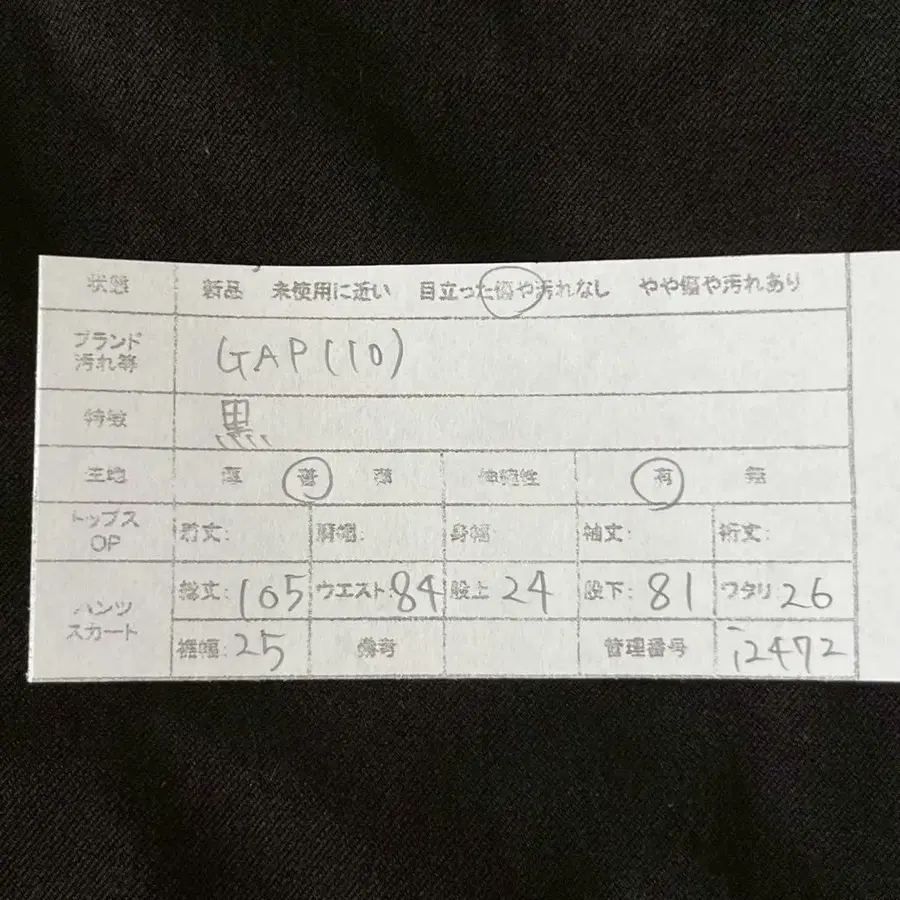 状態 新品 未使用に近い 目立った傷や汚れなし やや傷や汚れあり
ブランド
汚れ等
GAP(10)
特徴 黒
生地 厚 普 薄 伸縮性 有 無
トップス
OP
着丈: 肩幅: 身幅 袖丈: 裄丈:
パンツ
スカート
総丈: 105 ウエスト: 84 股上 24 股下: 81 ワタリ: 26
裾幅: 25 備考 管理番号 i2472